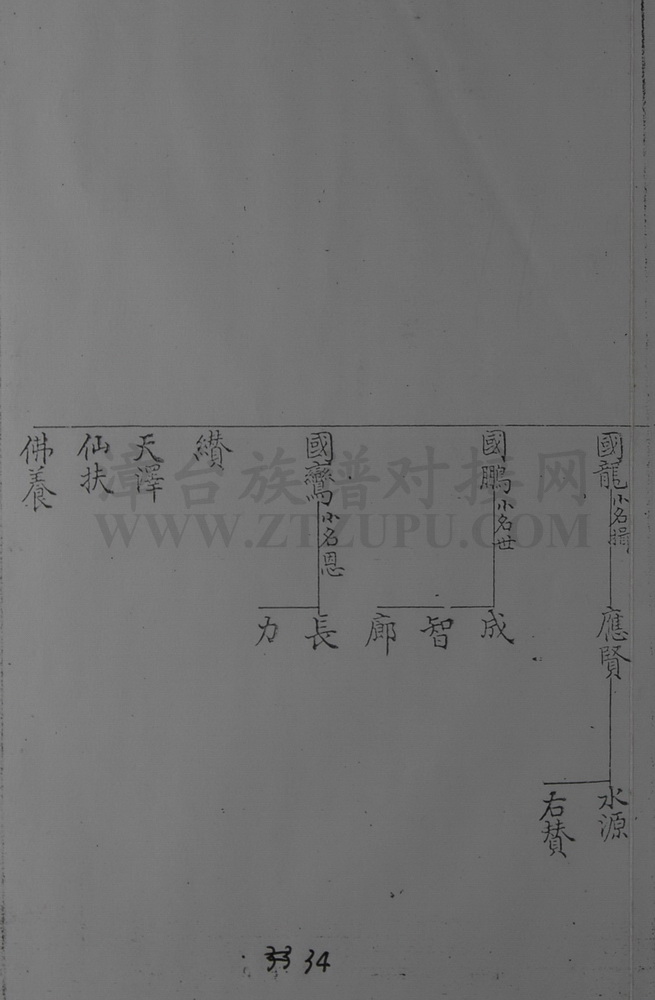 國龍小名揖
國鵬小名世
國鸞小名恩
纘
天澤
仙扶
佛養
應賢
成
智
廊
長
力
水源
右賛
34
漳台族谱对接网
WWW.ZTZUPU.COM